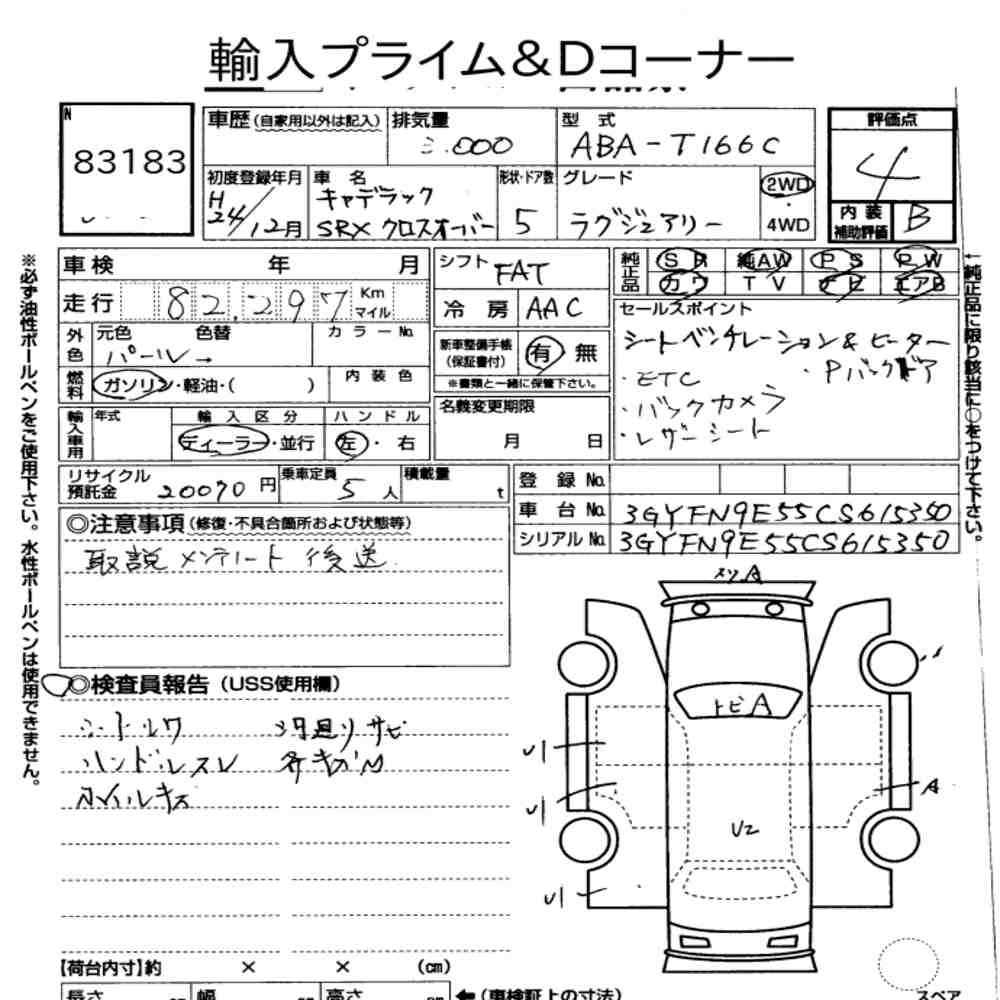 輸入プライム&Dコーナー
N
83183
車歴(自家用以外は記入)
排気量
3.000
型 式
ABA-T166C
評価点
4
初度登録年月
H24/12月
車 名
キャデラック
SRX クロスオーバー
形状・ドア数
5
グレード
ラグジュアリー
2WD
・
4WD
内装補助評価
B
車検 年 月
走行 82,297 Km マイル
外色
元色 色替
パール→
カラーNo.
燃料
ガソリン・軽油・( )
内装色
輸入車用
年式
輸入区分
ディーラー・並行
ハンドル
左・右
シフト
FAT
冷房
AAC
新車整備手帳(保証書付)
有 無
※書類と一緒に保管下さい。
名義変更期限
月 日
純正品
SR 純AW PS PW
カワ TV ナビ エアB
セールスポイント
シートベンチレーション&ヒーター
・ETC ・Pバックドア
・バックカメラ
・レザーシート
リサイクル預託金
20070円
乗車定員
5人
積載量
t
登録No.
車台No.
3GYFN9E55CS615350
シリアルNo.
3GYFN9E55CS615350
◎注意事項(修復・不具合箇所および状態等)
取説 メンテノート 後送
◎検査員報告(USS使用欄)
ハンドルスレ
ホイルキズ
【荷台内寸】約 × × (cm)
長さ cm 幅 cm 高さ cm
←(車検証上の寸法)
スペア
メソA
トビA
A
U2
U1
U1
U1
※必ず油性ボールペンをご使用下さい。水性ボールペンは使用できません。
←純正品に限り該当に○をつけて下さい。